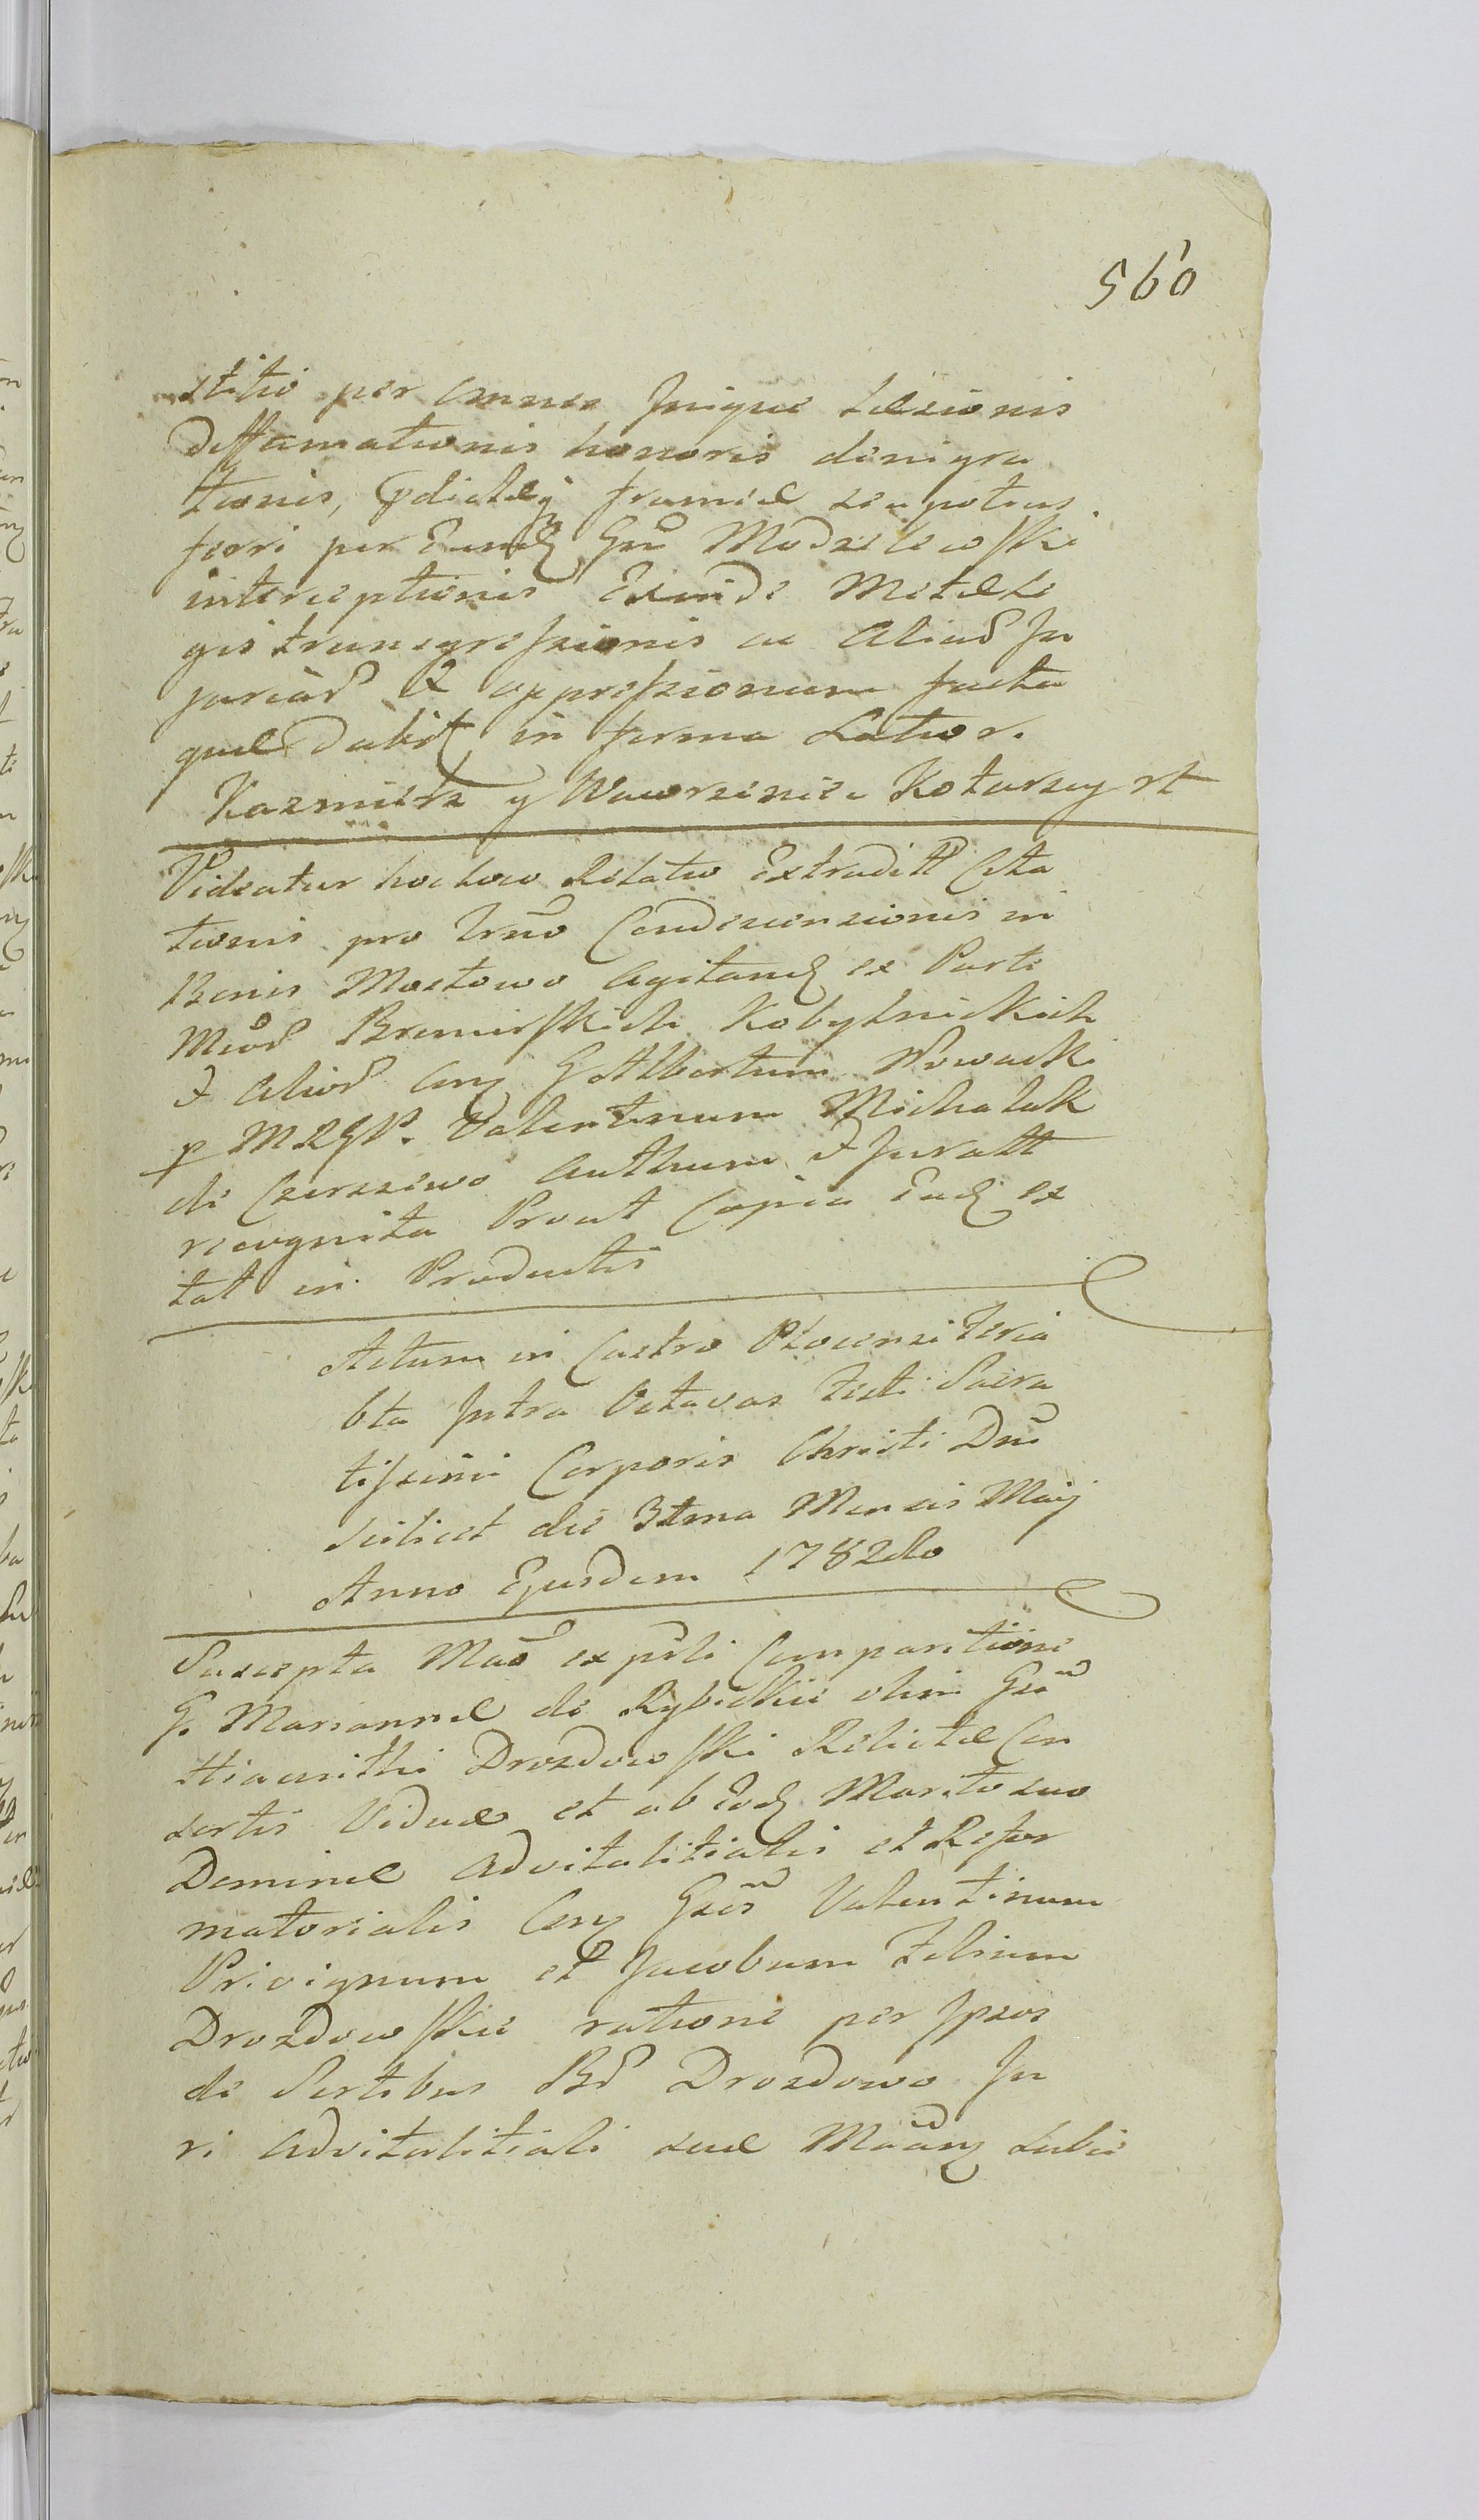 560
stitio per omnes Inique Læsionis
Deffamationis honoris denigra
tionis, pdictæq framiæ seu potius
fieri per Eund Gnu Modzelewski
interceptionis Exinde Metæ Le
gis transgressionis ac Aliar In
juriar & oppressionum facta
quæ Dabit in forma Latior.
Kazmierz y Wawrzeniec Kotarzy rt
Videatur hoc loco Relatio Extraditt Cita
tionis pro Trno Condescensionis in
Bonis Mostowo Agitand ex Parte
Mcor Bromirskich Kobylnickich
& alior Cong G Albertum Nowacki
p M R G P. Valentinum Michalak
de Czerzewo Authum & Juratt
recognita Prout Copia Ead ex
tat in Productis
Actum in Castro Plocensi Feria
6ta Intra Octavas Festi Sacra
tissimi Corporis Christi Dni
scilicet die 31ma Mensis Maij
Anno Ejusdem 1782do
Suscepta Mao ex psti Comparitione
G. Mariannæ de Rybickie olim Gsi
Hiacinthi Drozdowski Relictæ Con
sortis Viduæ et ab Eod Marito suo
Dominæ Advitalitialis et Refor
matorialis Cong Gsos Valentinum
Privignum et Jacobum Filium
Drozdowskie ratione per Ipsos
de Sortibus Br Drozdowo Ju
ri Advitalitiali suæ Mäanz subie